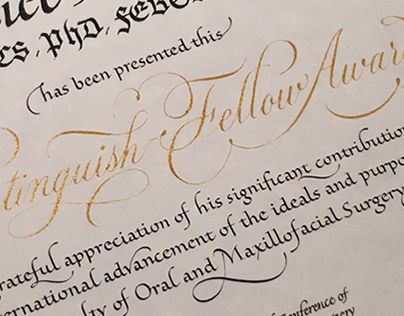 CS, PhD, FEBO
has been presented this
tinguish Fellow Award
grateful appreciation of his significant contribution
ternational advancement of the ideals and purpo
lty of Oral and Maxillofacial Surgery
Conference of